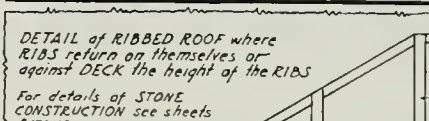 DETAIL of RIBBED ROOF where
RIBS return on themselves or
against DECK the height of the RIBS
For details of STONE
CONSTRUCTION see sheets